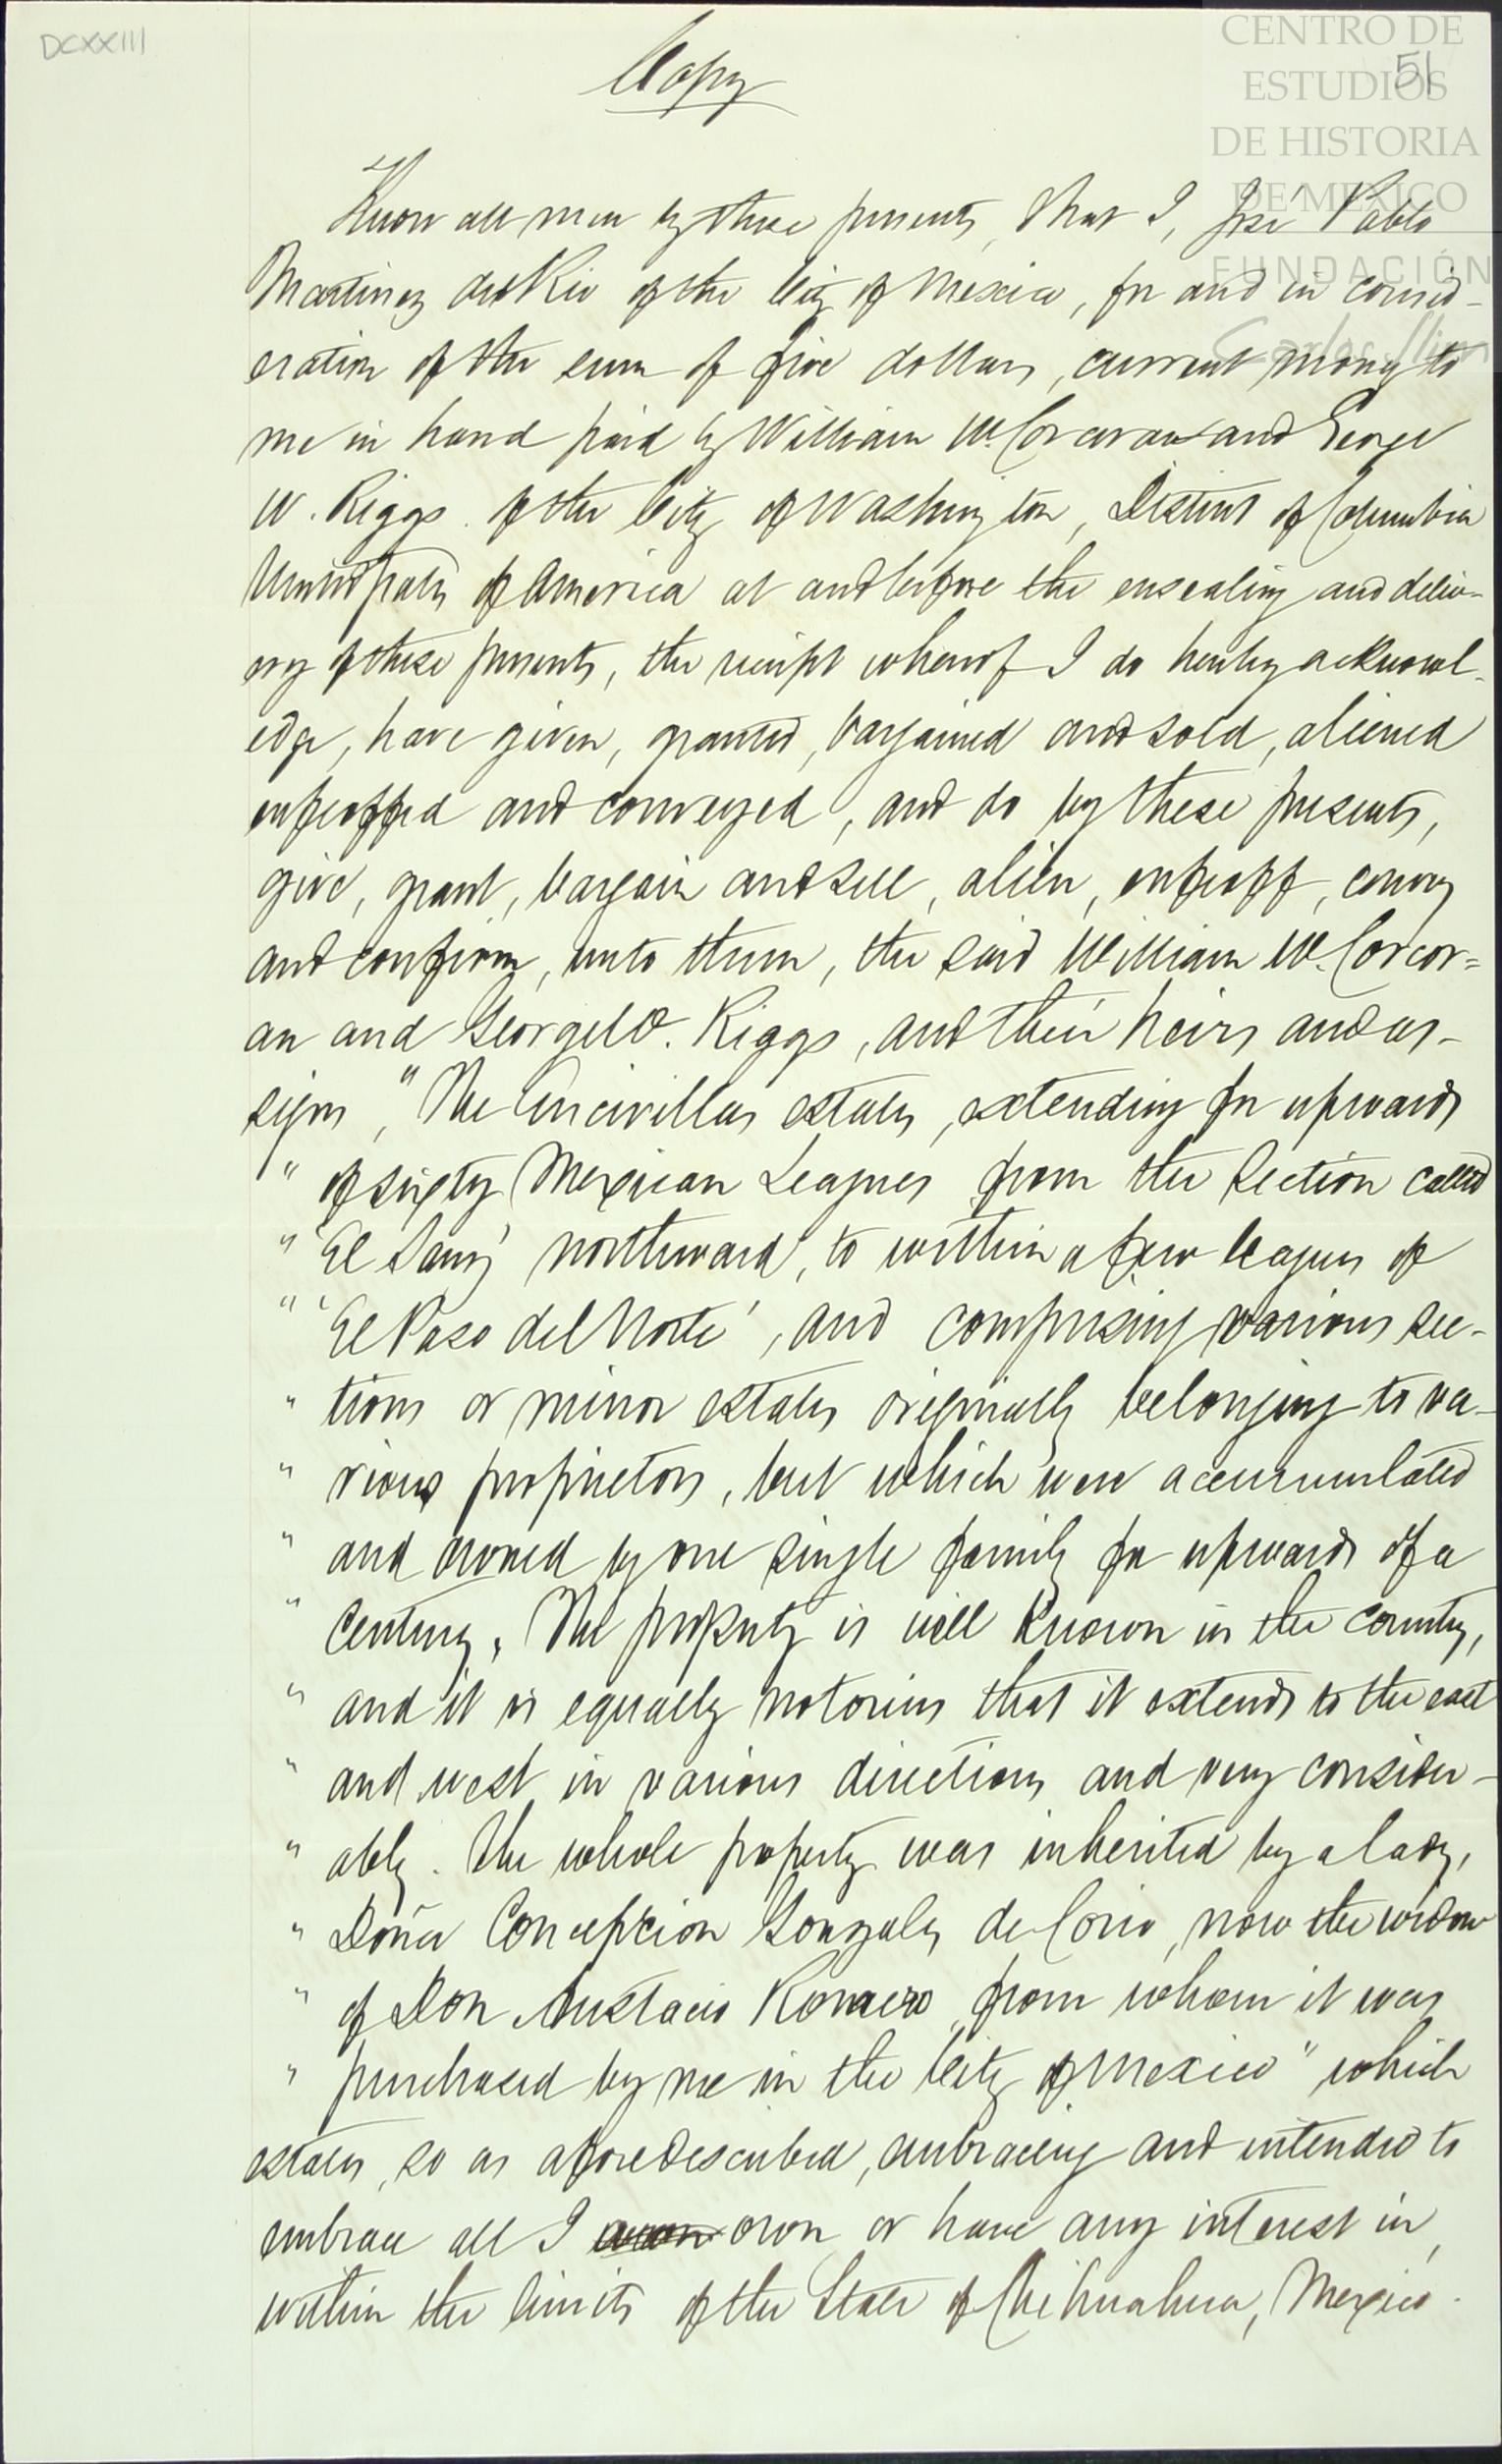 DCXXIII
CENTRO DE
ESTUDIOS
51
DE HISTORIA
DE MÉXICO
FUNDACIÓN
Carlos Slim
Copy
Know all men by these presents, that I, José Pablo
Martinez del Rio of the City of Mexico, for and in consid-
eration of the sum of five dollars, current money to
me in hand paid by William W. Corcoran and George
W. Riggs. of the City of Washington, District of Columbia
United States of America at and before the ensealing and deliv-
ery of these presents, the receipt whereof I do hereby acknowl-
edge, have given, granted, bargained and sold, aliened
enfeoffed and conveyed, and do by these presents,
give, grant, bargain and sell, alien, enfeoff, convey
and confirm, unto them, the said William W. Corcor=
an and George W. Riggs, and their heirs and as-
signs, "The Encinillas estates, extending for upwards
" of sixty Mexican Leagues from the Section called
" 'El Sauz' northward, to within a few leagues of
" 'El Paso del Norte', and comprising various sec-
" tions or minor estates originally belonging to va-
" rious proprietors, but which were accumulated
" and owned by one single family for upwards of a
" Century. The property is well known in the country,
" and it is equally notorious that it extends to the east
" and west in various directions and very consider-
" ably. The whole property was inherited by a lady,
" Doña Concepcion Gonzales de Cosio, now the widow
" of Don Anastacio Romero, from whom it was
" purchased by me in the City of Mexico" which
estates, so as aforedescribed, embracing and intended to
embrace all I own, or have any interest in,
within the limits of the State of Chihuahua, Mexico.